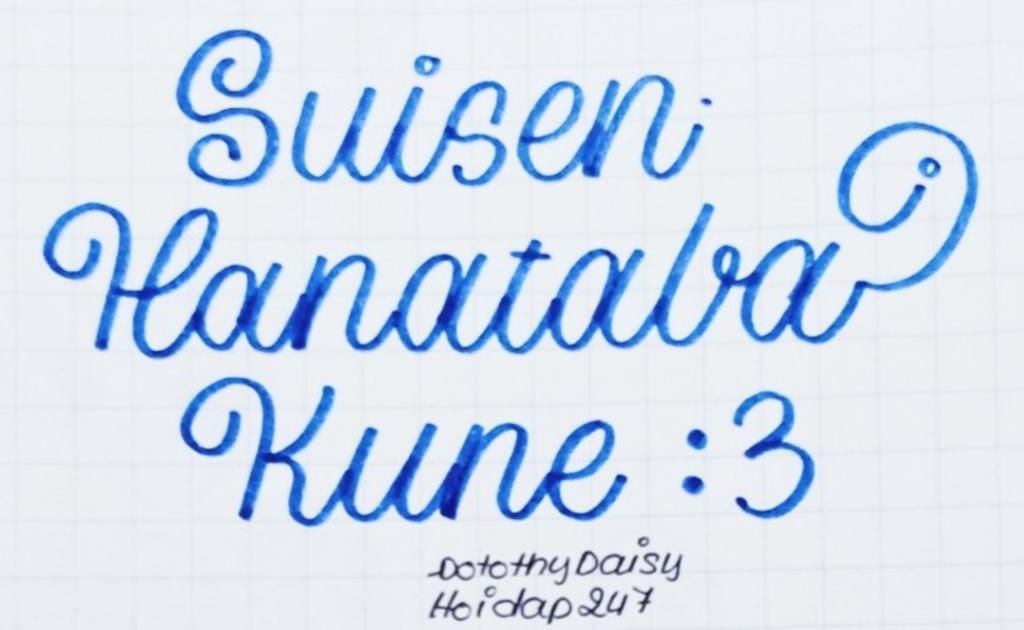 Suisen
Hanataba
Kune :3
DotothyDaisy
Hoidap247